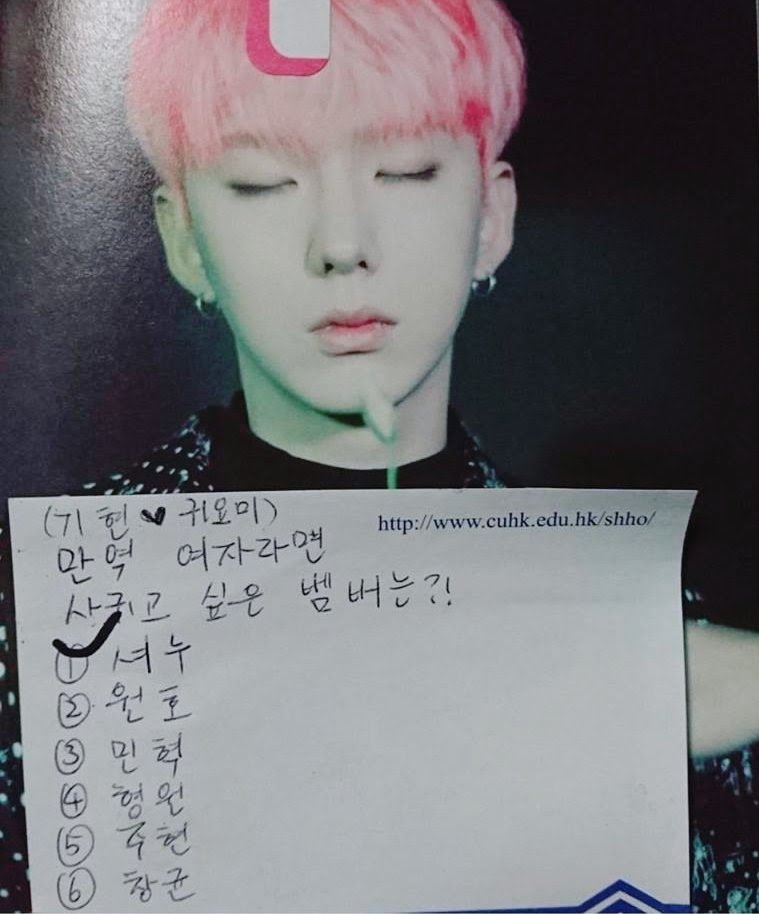 (기현♥귀요미)
http://www.cuhk.edu.hk/shho/
만역 여자라면
사귀고 싶은 벰버는?!
① 셔누
② 원호
③ 민혁
④ 형원
⑤ 주헌
⑥ 창균